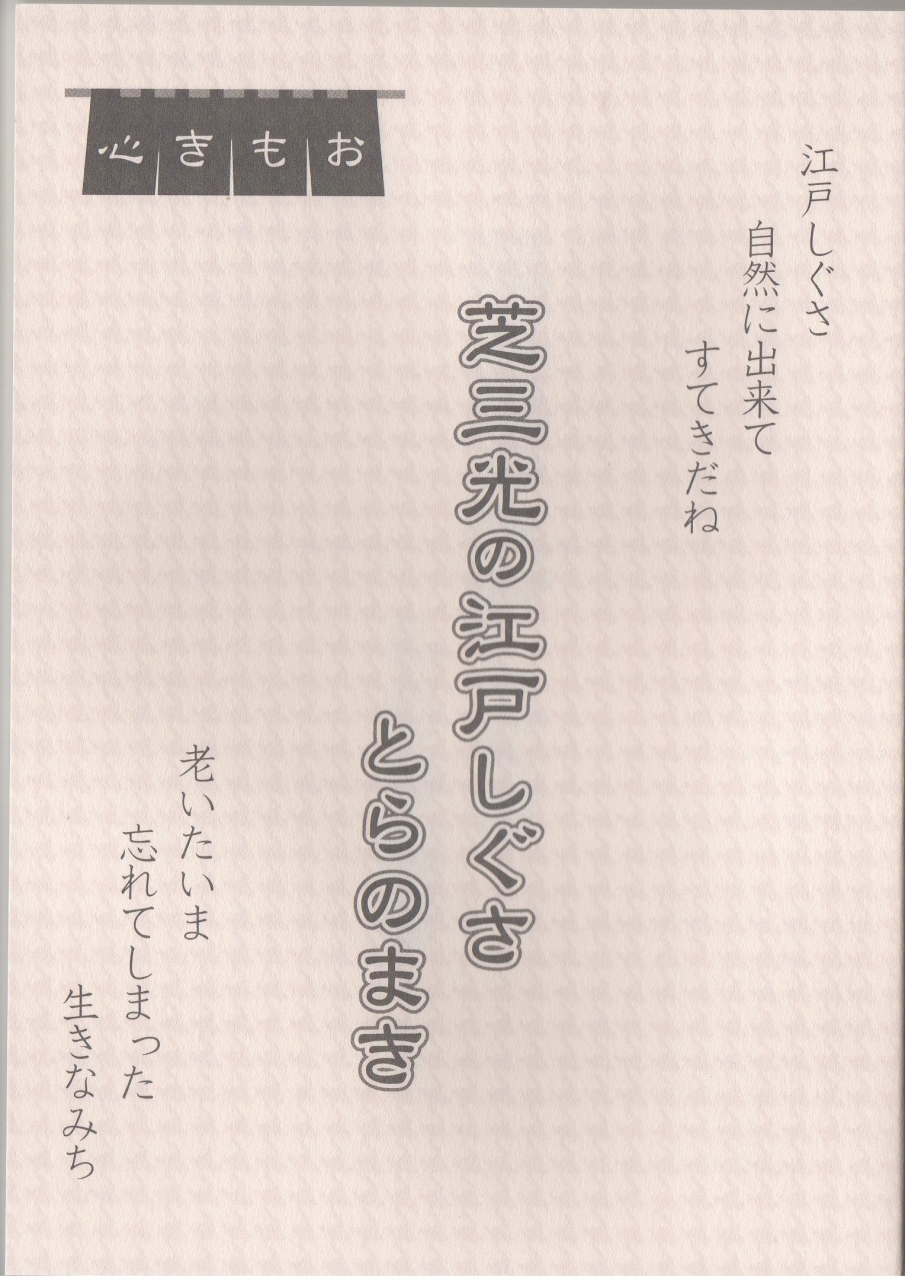 江戸しぐさ
自然に出来て
すてきだね
芝三光の江戸しぐさ
とらのまき
おもき心
老いたいま
忘れてしまった
生きなみち